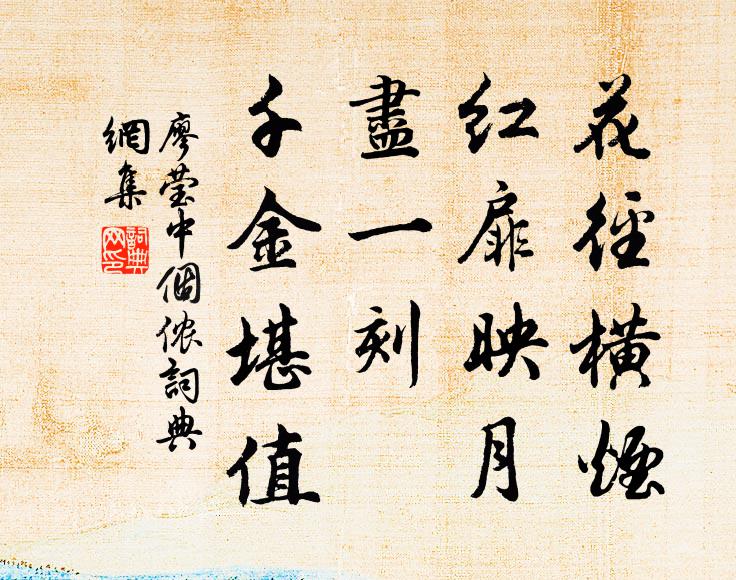 花徑橫煙
紅扉映月
盡一刻
千金堪值
廖瑩中個儂詞典
網集
詞典
网印